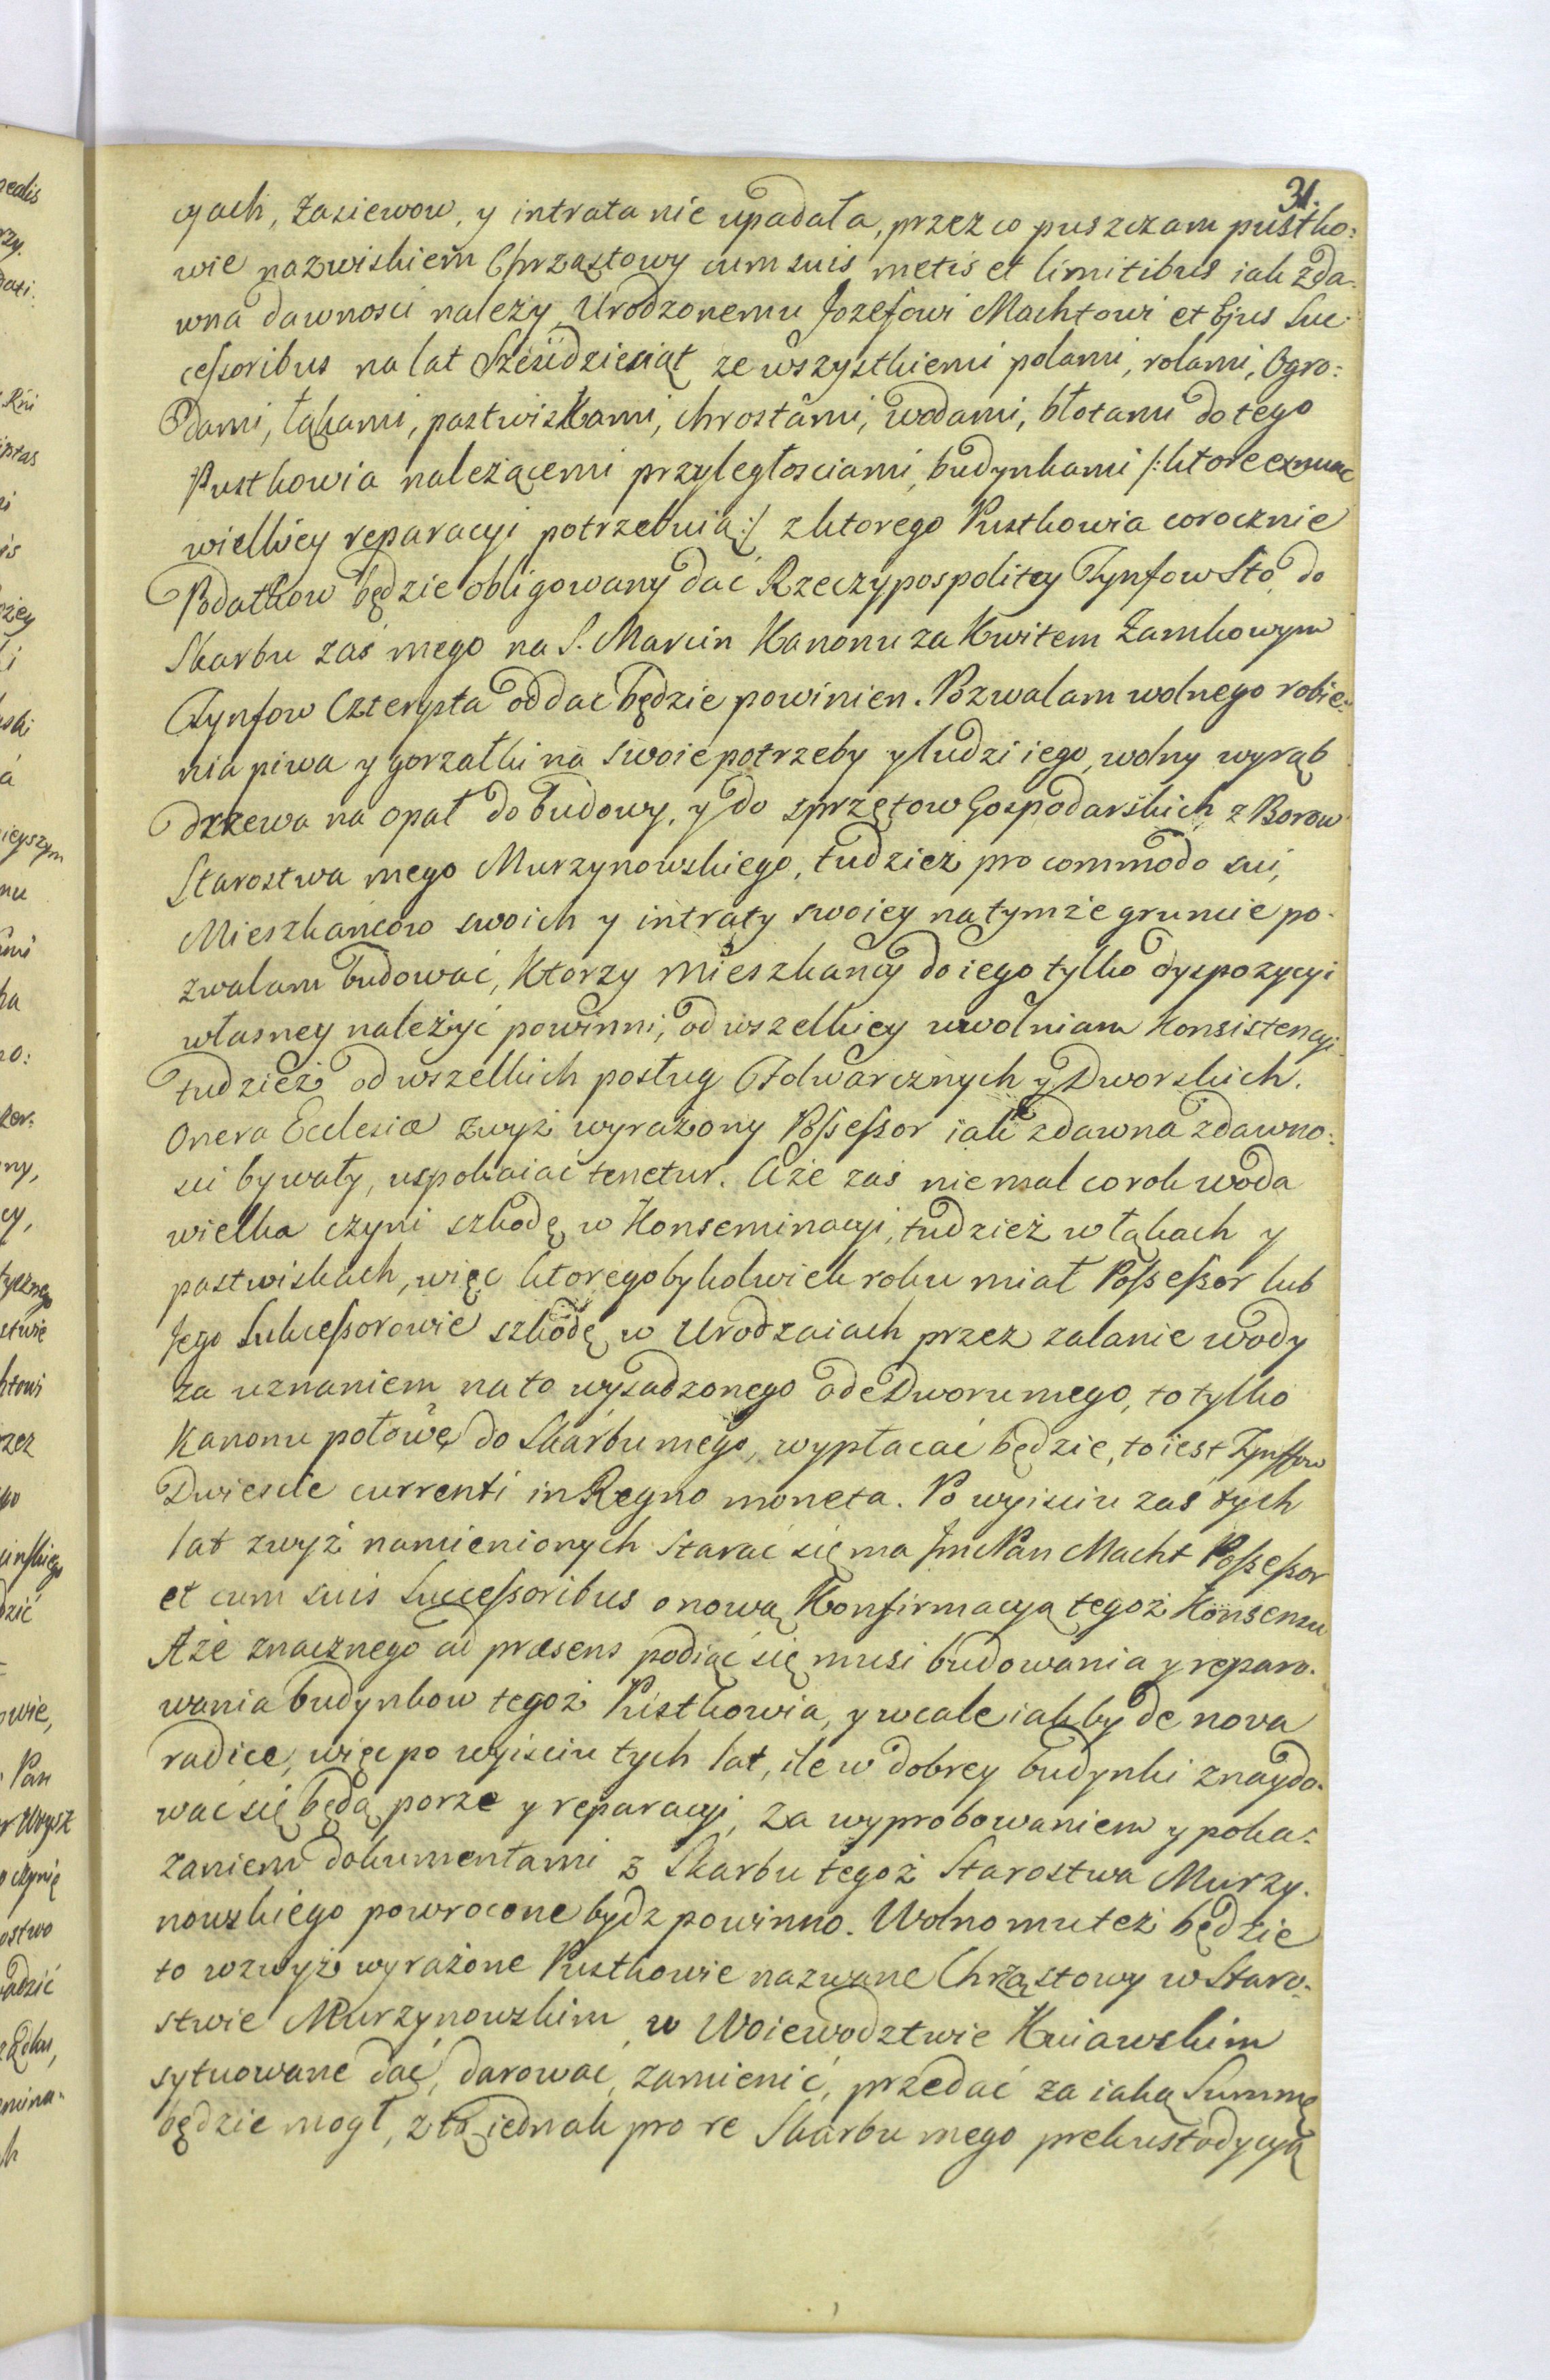 31.
cyach, zasiewow, y intrata nie upadała, przez co puszczam pustko:
wie nazwiskiem Chrząstowy cum suis metis et limitibus iak zda-
wna dawnosci należy Urodzonemu Jozefowi Machtowi et Ejus Suc-
cessoribus na lat Sześćdziesiąt ze wszystkiemi polami, rolami, Ogro:
dami, łąkami, pastwiskami, chrostami, wodami, błotami do tego
Pustkowia należącemi przyległosciami, budynkami /: ktore
wielkiey reparacyi potrzebuią :/ z ktorego Pustkowia corocznie
Podatkow będzie obligowany dać Rzeczypospolitey Tynfow Sto, do
Skarbu zaś mego na S. Marcin Kanonu za Kwitem Zamkowym
Tynfow Czterysta oddac będzie powinien. Pozwalam wolnego robie-
nia piwa y gorzałki na swoie potrzeby y ludzi iego, wolny wyrąb
drzewa na opał do budowy, y do sprzętow Gospodarskich z Borow
Starostwa mego Murzynowskiego, tudzież pro commodo sui,
Mieszkańcow swoich y intraty swoiey na tymże gruncie po-
zwalam budować, Ktorzy mieszkancy do iego tylko dyspozycyi
własney należyć powinni, od wszelkiey uwolniam Konsistencyi
tudzież od wszelkich posług Folwarcznych y Dworskich.
Onera Ecclesiæ zwyż wyrażony Possessor iak zdawna zdawno:
sci bywały, uspokaiać tenetur. Aże zaś niemal co rok woda
wielka czyni szkodę w Konseminacyi, tudzież w łąkach y
pastwiskach, więc ktoregobykolwiek roku miał Possessor lub
Jego Sukcessorowie szkodę w Urodzaiach przez zalanie wody
za uznaniem na to wysadzonego ode Dworu mego, to tylko
Kanonu połowę do Skarbu mego, wypłacać będzie, to iest Tynffow
Dwiescie currenti in Regno moneta. Po wyisciu zaś tych
lat zwyż namienionych starać się ma Jmć Pan Macht Possessor
et cum suis Successoribus o nową Konfirmacyą tegoż Konsensu
Aże znacznego ad præsens podiąć się musi budowania y reparo-
wania budynkow tegoż Pustkowia, y wcale iakby de nova
radice, więc po wyisciu tych lat, ile w dobrey budynki znaydo-
wać się będą porze y reparacyi, za wyprobowaniem y poka-
zaniem dokumentami z Skarbu tegoż Starostwa Murzy-
nowskiego powrocone bydz powinno. Wolno mu też będzie
to wzwyż wyrażone Pustkowie nazwane Chrząstowy w Staro-
stwie Murzynowskim w Woiewodztwie Kuiawskim
sytuowane dać, darować, zamienić, przedać za iaką Summę
będzie mogł, z tą iednak pro re Skarbu mego prekustodycyą